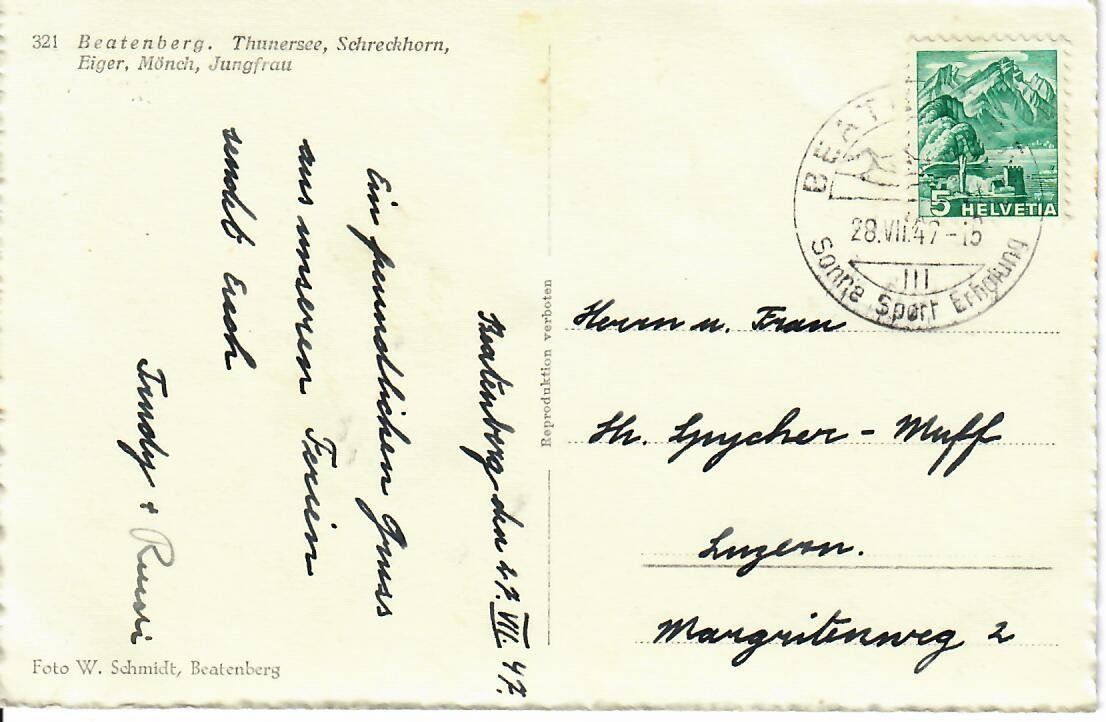 321 Beatenberg. Thunersee, Schreckhorn,
Eiger, Mönch, Jungfrau
Beatenberg den 27. VII. 47.
Ein freundlichen Gruss
aus unseren Ferien
sendet Euch
Trudy +
Foto W. Schmidt, Beatenberg
Reproduktion verboten
5 HELVETIA
BEAT
28.VII.47-18
III
Sonne Sport Erholung
Herrn u. Frau
Spycher - Muff
Luzern.
Margritenweg 2